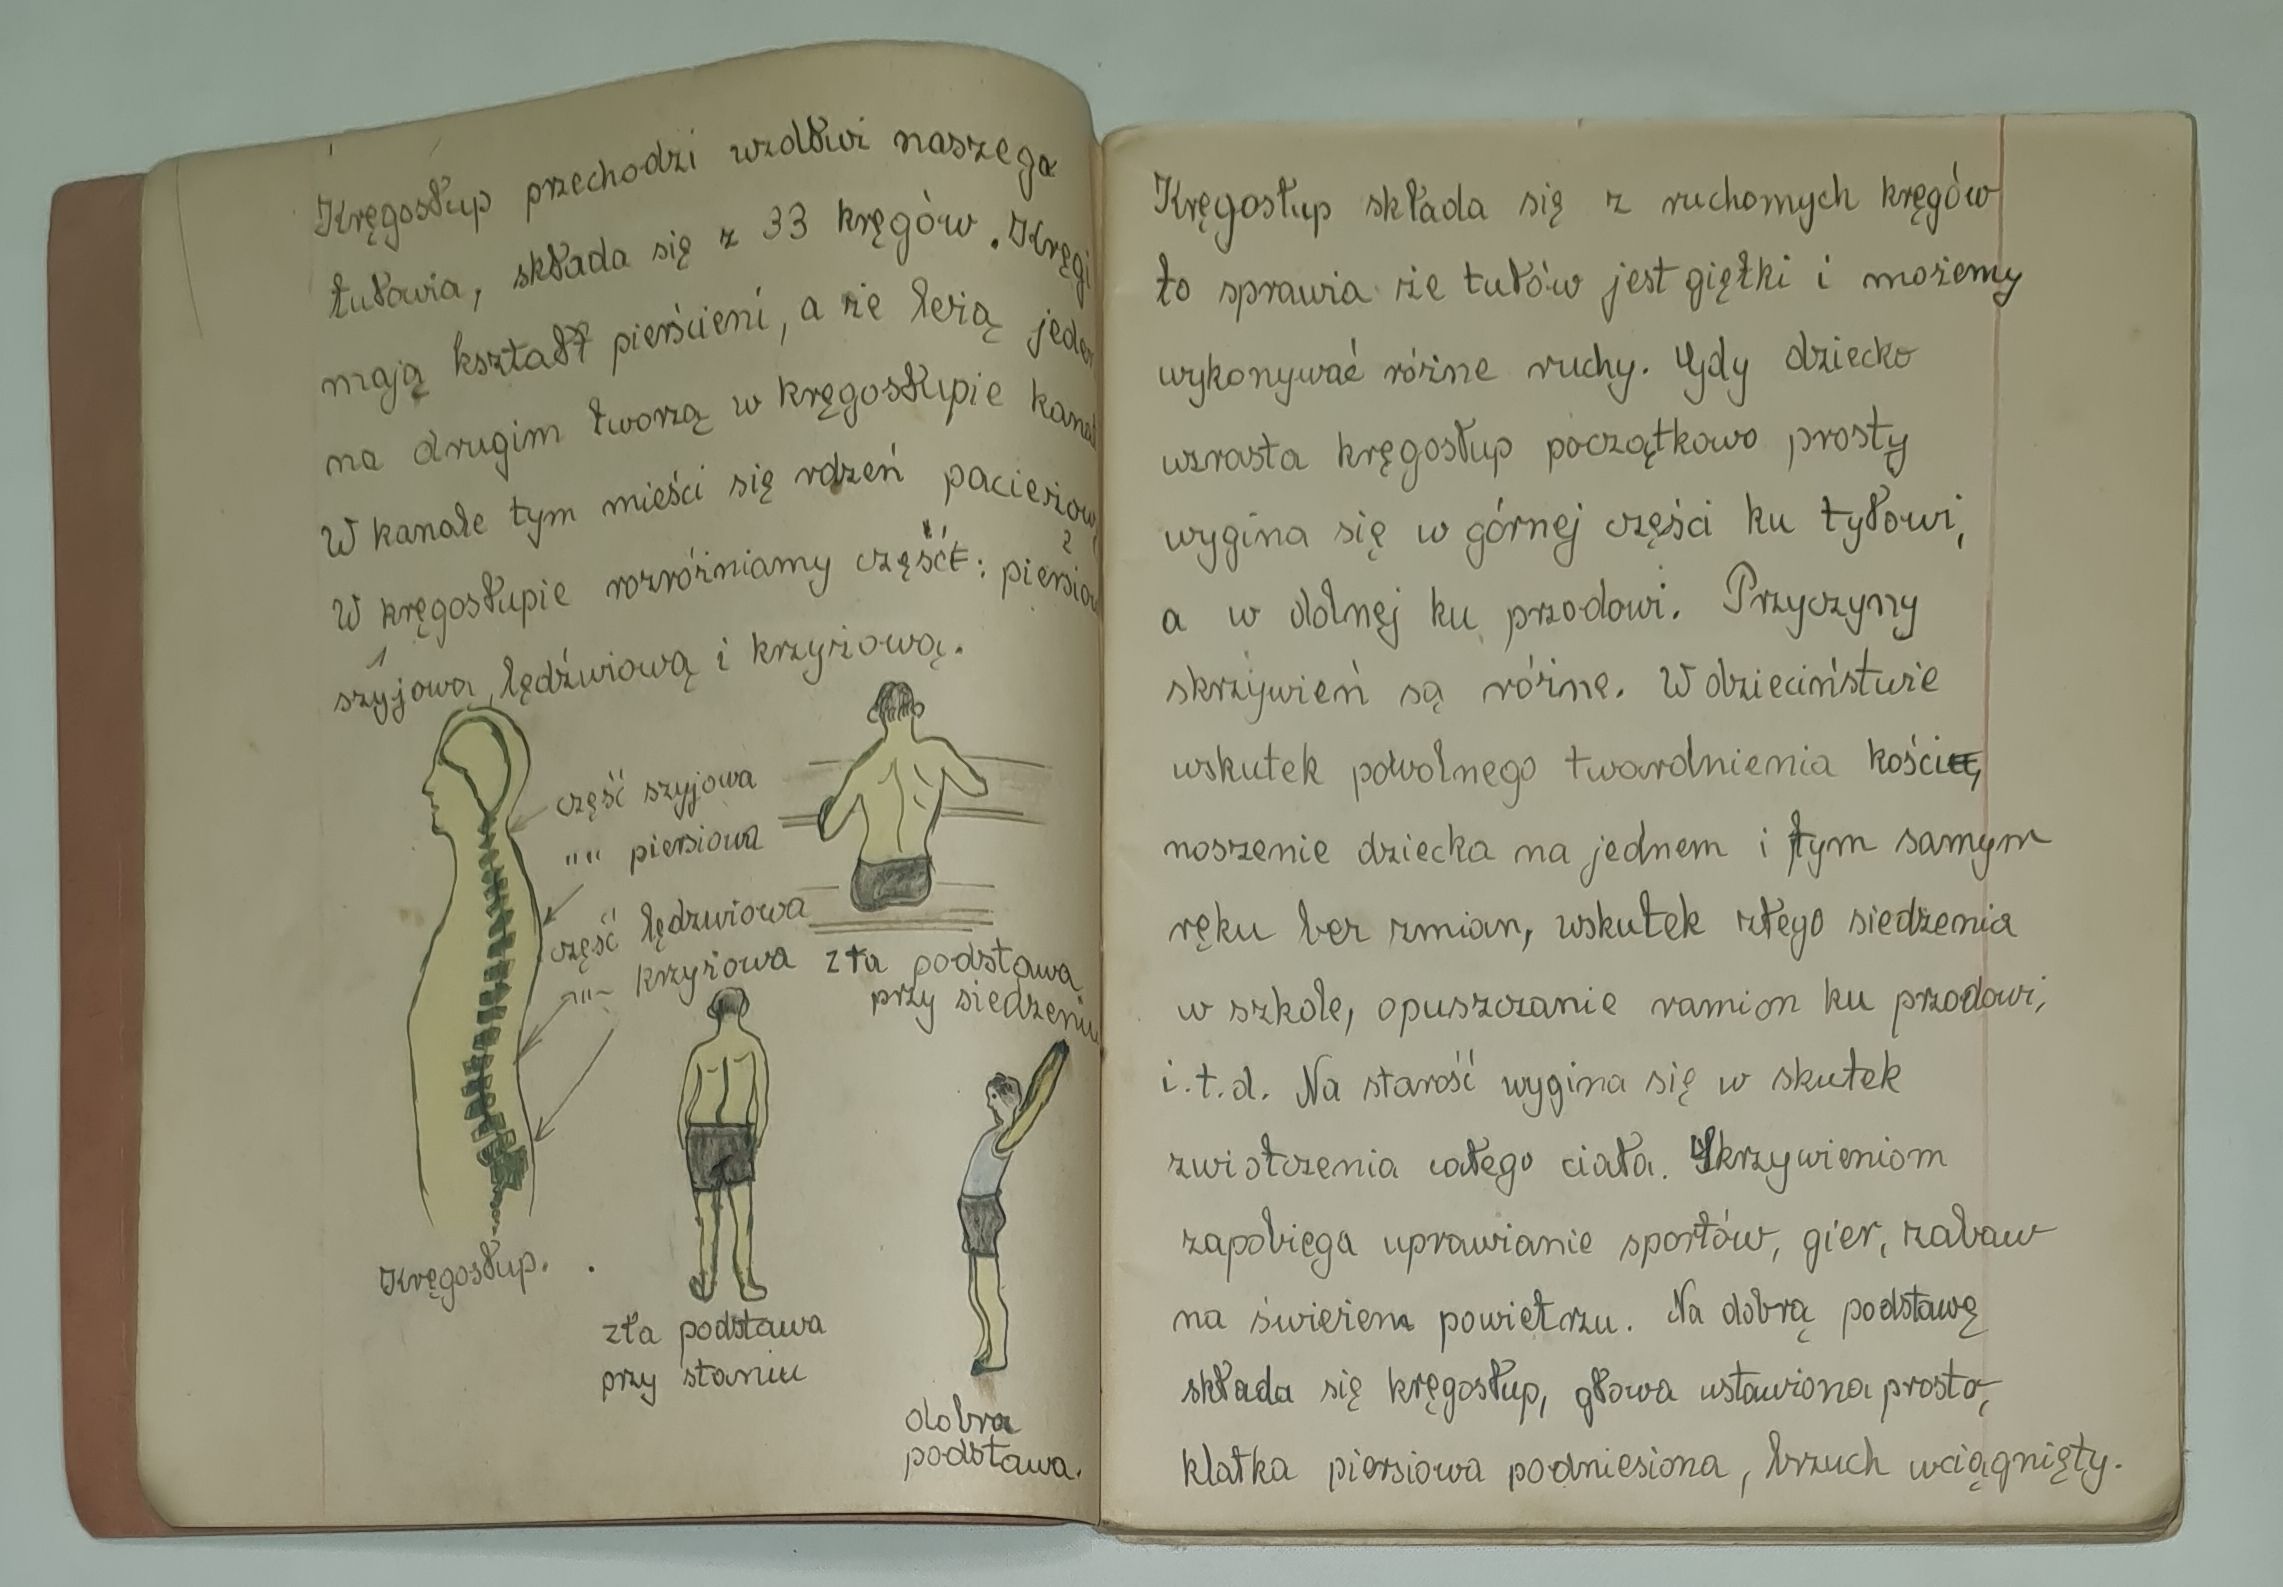 Kręgosłup przechodzi wzdłuż naszega
tułowia, składa się z 33 kręgów. Kręgi
mają kształt pierścieni, a że leżą jeden
na drugim tworzą w kręgosłupie kanał
W kanale tym mieści się rdzeń pacierzowy
W kręgosłupie rozróżniamy część: piersiow
szyjową, lędźwiową i krzyżową.
część szyjowa
"" piersiowa
część lędzwiowa
-"- krzyżowa
Kręgosłup.
zła podstawa
przy siedzeniu
zła podstawa
przy staniu
dobra
podstawa.
Kręgosłup składa się z ruchomych kręgów
to sprawia że tułów jest giętki i możemy
wykonywać różne ruchy. Gdy dziecko
wzrasta kręgosłup początkowo prosty
wygina się w górnej części ku tyłowi,
a w dolnej ku przodowi. Przyczyny
skrzywień są różne. W dzieciństwie
wskutek powolnego twardnienia kości,
noszenie dziecka na jednem i tym samym
ręku bez zmian, wskutek złego siedzenia
w szkole, opuszczanie ramion ku przodowi,
i.t.d. Na starość wygina się w skutek
zwiotczenia całego ciała. Skrzywieniom
zapobiega uprawianie sportów, gier, zabaw
na świeżem powietrzu. Na dobrą podstawę
składa się kręgosłup, głowa ustawiona prosto,
klatka piersiowa podniesiona, brzuch wciągnięty.